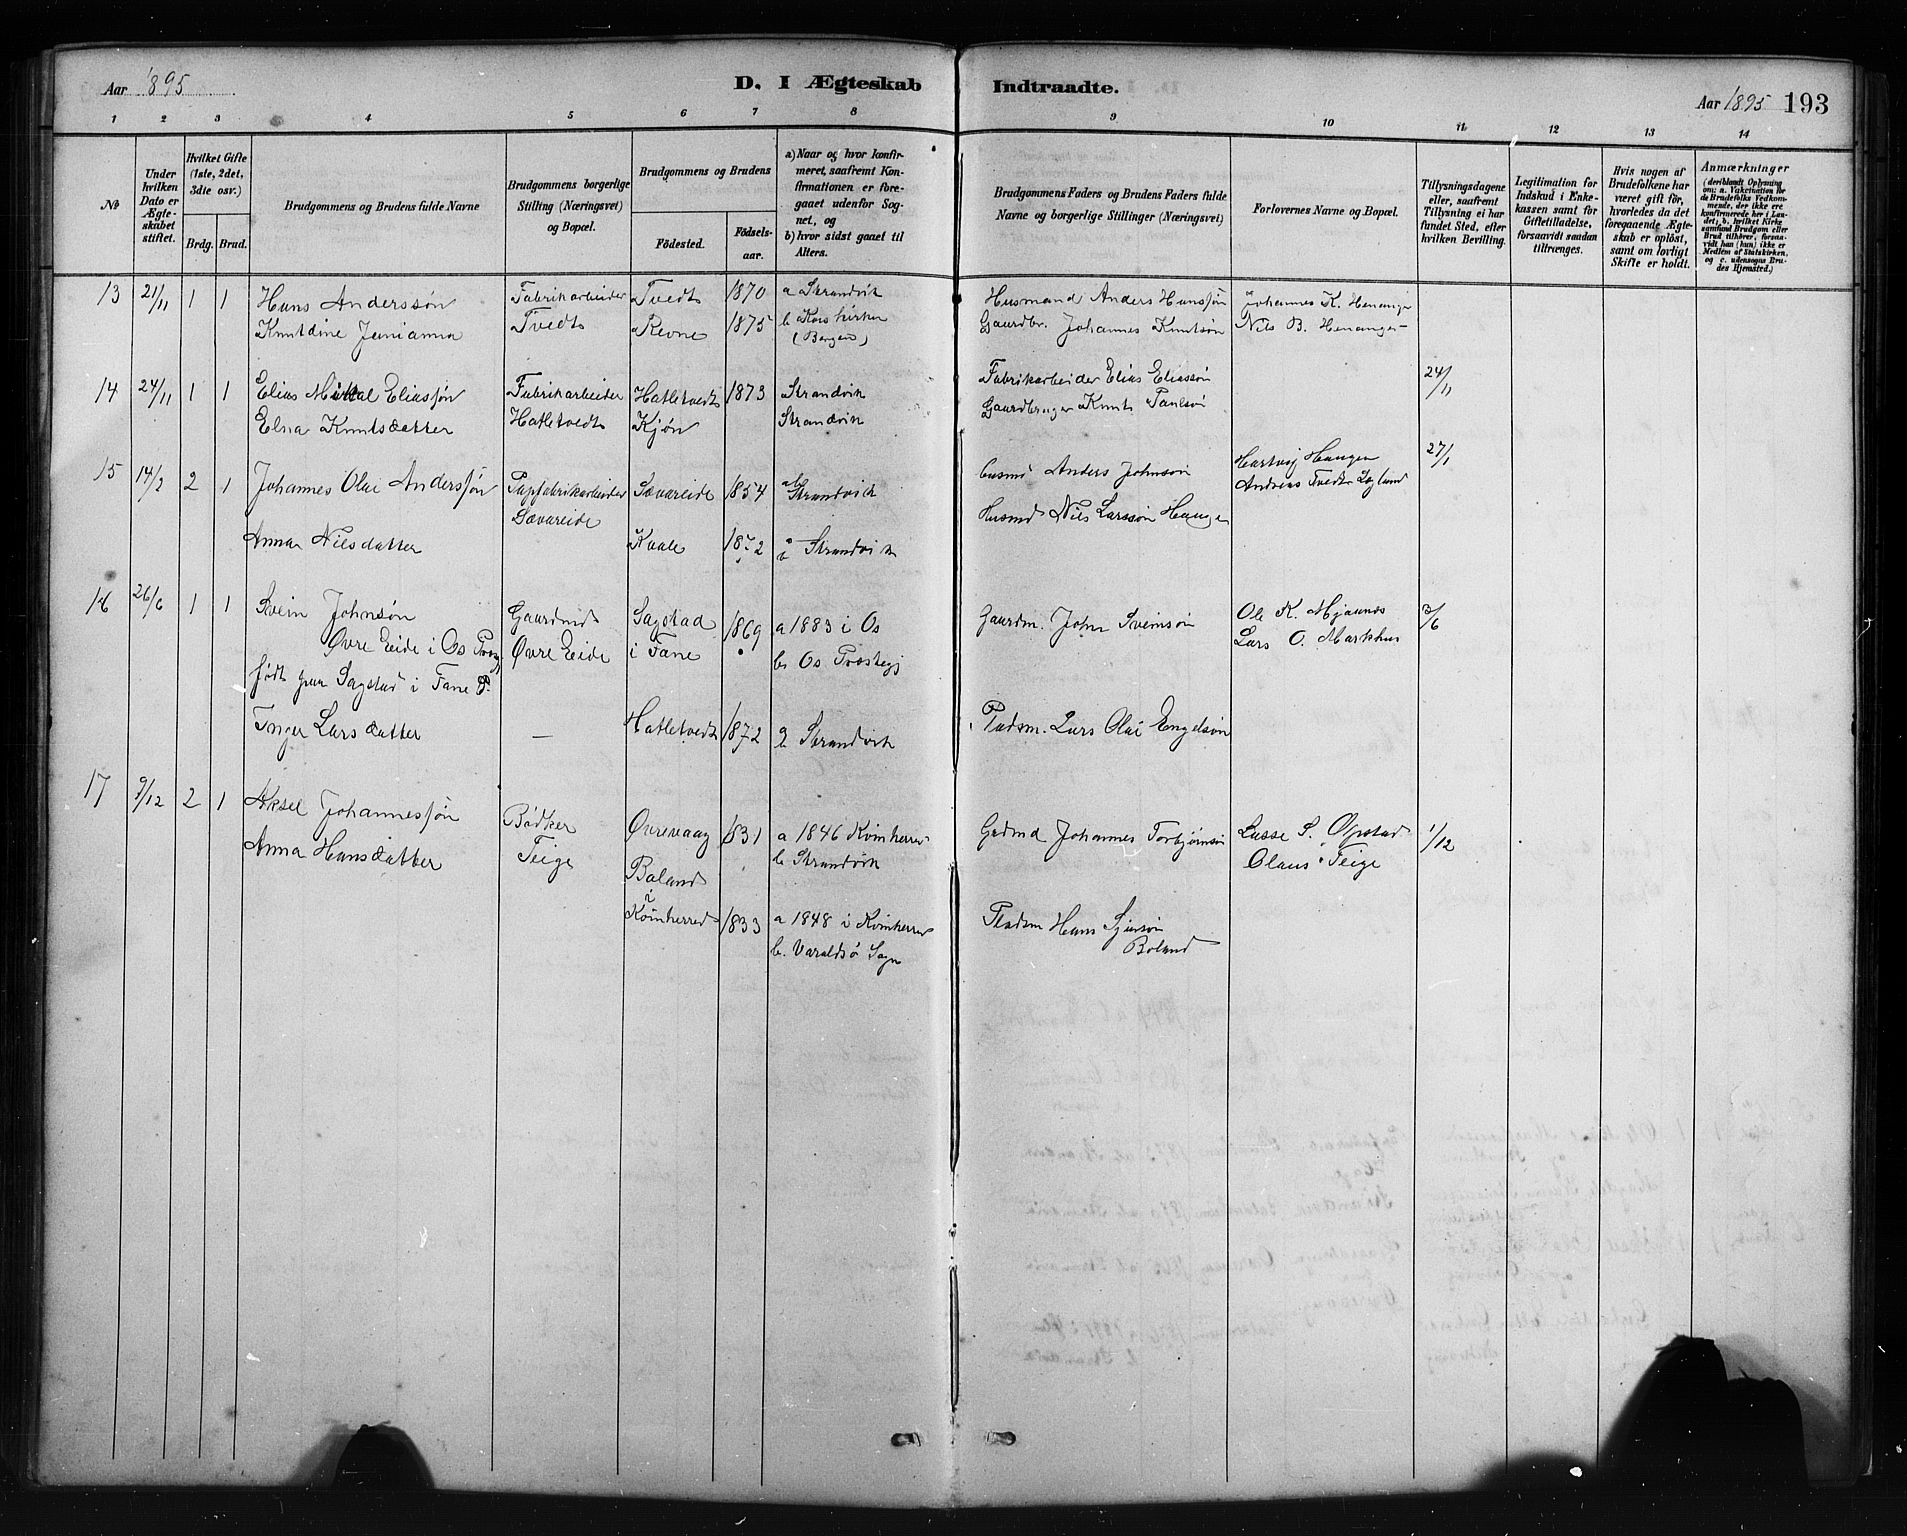 Aar 1895
D. I Ægteskab Indtraadte.
Aar 1895 193
1 2 3 4 5 6 7 8 9 10 11 12 13 14
No
Under hvilken Dato er Ægteskabet stiftet.
Hvilket Gifte (1ste, 2det, 3die osv.)
Brdg. Brud.
Brudgommens og Brudens fulde Navne
Brudgommens borgerlige Stilling (Næringsvei) og Bopæl.
Brudgommens og Brudens
Födested. Födselsaar.
a) Naar og hvor konfirmeret, saafremt Konfirmationen er foregaaet udenfor Sognet, og
b) hvor sidst gaaet til Alters.
Brudgommens Faders og Brudens Faders fulde Navne og borgerlige Stillinger (Næringsvei)
Forlovernes Navne og Bopæl.
Tillysningsdagene eller, saafremt Tillysning ei har fundet Sted, efter hvilken Bevilling.
Legitimation for Indskud i Enkekassen samt for Giftetilladelse, forsaavidt saadan tiltrænges.
Hvis nogen af Brudefolkene har været gift för, hvorledes da det foregaaende Ægteskab er oplöst, samt om lovligt Skifte er holdt.
Anmærkninger
(deriblandt Oplysning om: a. Vakcination for de Brudefolks Vedkommende, der ikke ere konfirmerede her i Landet; b. hvilket Kirkesamfund Brudgom eller Brud tilhörer, forsaavidt han (hun) ikke er Medlem af Statskirken, og c. udensogns Brudes Hjemsted.)
13 21/11 1 1 Hans Anderssøn Fabrikarbeider Tvedt 1870 a Strandvik Husmand Anders Hansjøn Johannes K. Henanger
Knutdine Janianna Tvedt Revne 1875 b Korskirken Gaardbr. Johannes Knutsøn Nils B. Henanger
(Bergen)
14 24/11 1 1 Elias Mikal Eliassøn Fabrikarbeider Hatletvedt 1873 Strandvik Fabrikarbeider Elias Eliassøn 24/11
Elna Knutsdatter Hatletvedt Kjøn Strandvik Gaardbruger Knut Paulsøn
15 14/2 2 1 Johannes Olai Anderssøn Papfabrikarbeider Sævareide 1854 ab Strandvik Husmd Anders Johnsøn Hartvig Haugen 27/1
Sævareide Andreas Tvedt
Anna Nilsdatter Kaale 1872 a b Strandvik Husmd Nils Larssøn Haugen
16 26/6 1 1 Svein Johnsøn Gaardmd Sagstad 1869 a 1883 i Os Gaardm. John Sveinsøn Ole K. Mjaanes 3/6
Øvre Eide i Os Præg Øvre Eide i Fane b. Os Præstegj Lars O. Markhus
født paa Sagstad i Fane P.
Inger Larsdatter — Hatletvedt 1872 Strandvik Pladsm. Lars Olai Engelsøn
17 9/12 2 1 Aksel Johannessøn Bødker Øvrevaag 1831 a 1846 Kvinherred Grdmd Johannes Torbjørnsøn Lasse S. Opstad 1/12
Anna Hansdatter Teige b. Strandvik Olaus Teige
Boland
i
Kvinherred 1833 a 1848 i Kvinherred Pladsm Hans Sjursøn
b. Varaldsø Sogn Boland